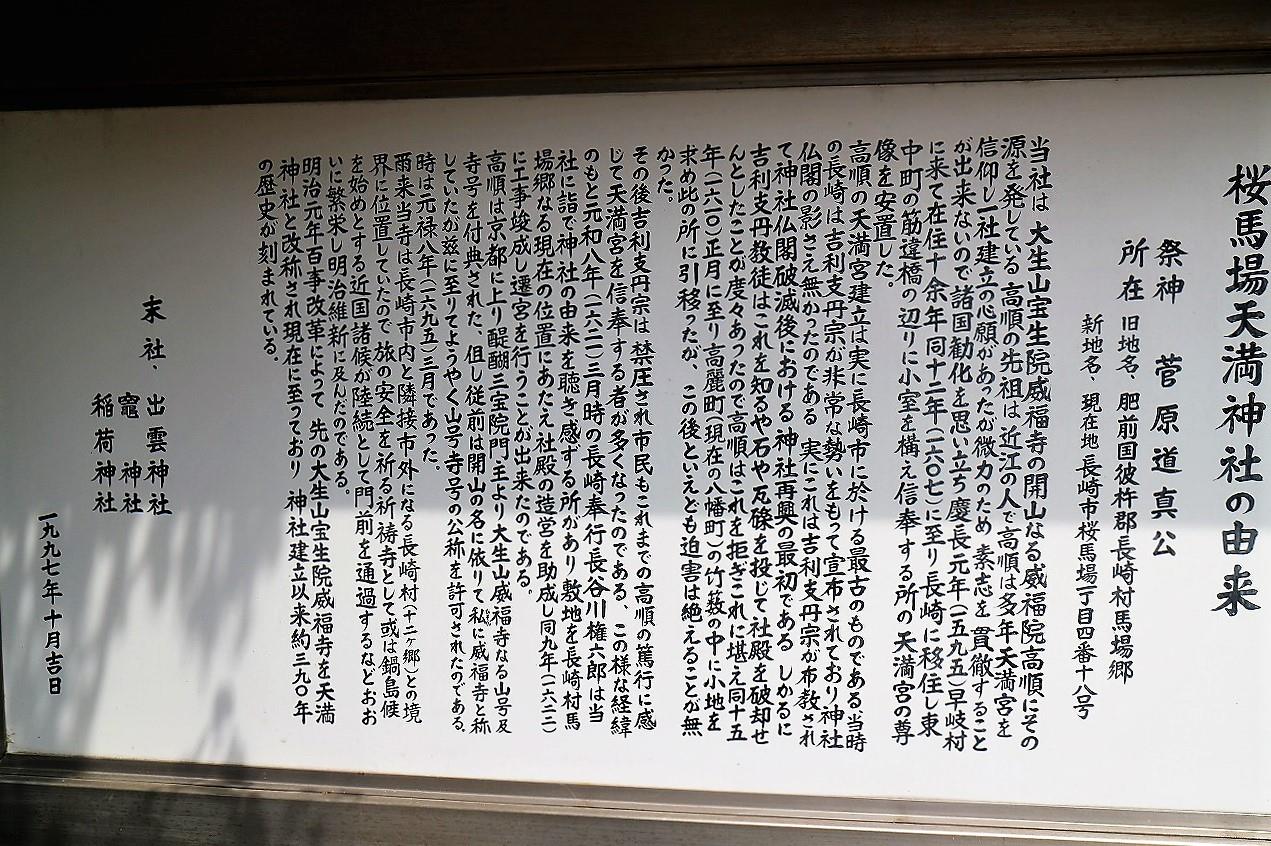 桜馬場天満神社の由来
祭神 菅原道真公
所在 旧地名、肥前国彼杵郡長崎村馬場郷
新地名、現在地 長崎市桜馬場一丁目四番十八号
当社は大生山宝生院威福寺の開山なる威福院高順にその
源を発している 高順の先祖は近江の人で高順は多年天満宮を
信仰し一社建立の心願があったが微力のため素志を貫徹すること
が出来ないので諸国勧化を思い立ち慶長元年(一五九五)早岐村
に来て在住十余年同十二年(一六〇七)に至り長崎に移住し東
中町の筋違橋の辺りに小室を構え信奉する所の天満宮の尊
像を安置した。
高順の天満宮建立は実に長崎市に於ける最古のものである 当時
の長崎は吉利支丹宗が非常な勢いをもって宣布されており神社
仏閣の影さえ無かったのである 実にこれは吉利支丹宗が布教され
て神社仏閣破滅後における神社再興の最初である しかるに
吉利支丹教徒はこれを知るや石や瓦礫を投じて社殿を破却せ
んとしたことが度々あったので高順はこれを拒ぎこれに堪え同十五
年(一六一〇)正月に至り高麗町(現在の八幡町)の竹薮の中に小地を
求め此の所に引移ったが、この後といえども迫害は絶えることが無
かった。
その後吉利支丹宗は禁圧され市民もこれまでの高順の篤行に感
じて天満宮を信奉する者が多くなったのである、この様な経緯
のもと元和八年(一六二二)三月時の長崎奉行長谷川権六郎は当
社に詣で神社の由来を聴き感ずる所があり敷地を長崎村馬
場郷なる現在の位置にあたえ社殿の造営を助成し同九年(一六二三)
に工事竣成し遷宮を行うことが出来たのである。
高順は京都に上り醍醐三宝院門主より大生山威福寺なる山号及
寺号を付典された、但し従前は開山の名に依りて私に威福寺と称
していたが茲に至りてようやく山号寺号の公称を許可されたのである。
時は元禄八年(一六九五)三月であった。
雨来当寺は長崎市内と隣接市外になる長崎村(十二ヶ郷)との境
界に位置していたので旅の安全を祈る祈祷寺として或は鍋島候
を始めとする近国諸候が陸続として門前を通過するなどおお
いに繁栄し明治維新に及んだのである。
明治元年百事改革によって先の大生山宝生院威福寺を天満
神社と改称され現在に至っており 神社建立以来約三九〇年
の歴史が刻まれている。
末社、出雲神社
竈神社
稲荷神社
一九九七年十月吉日